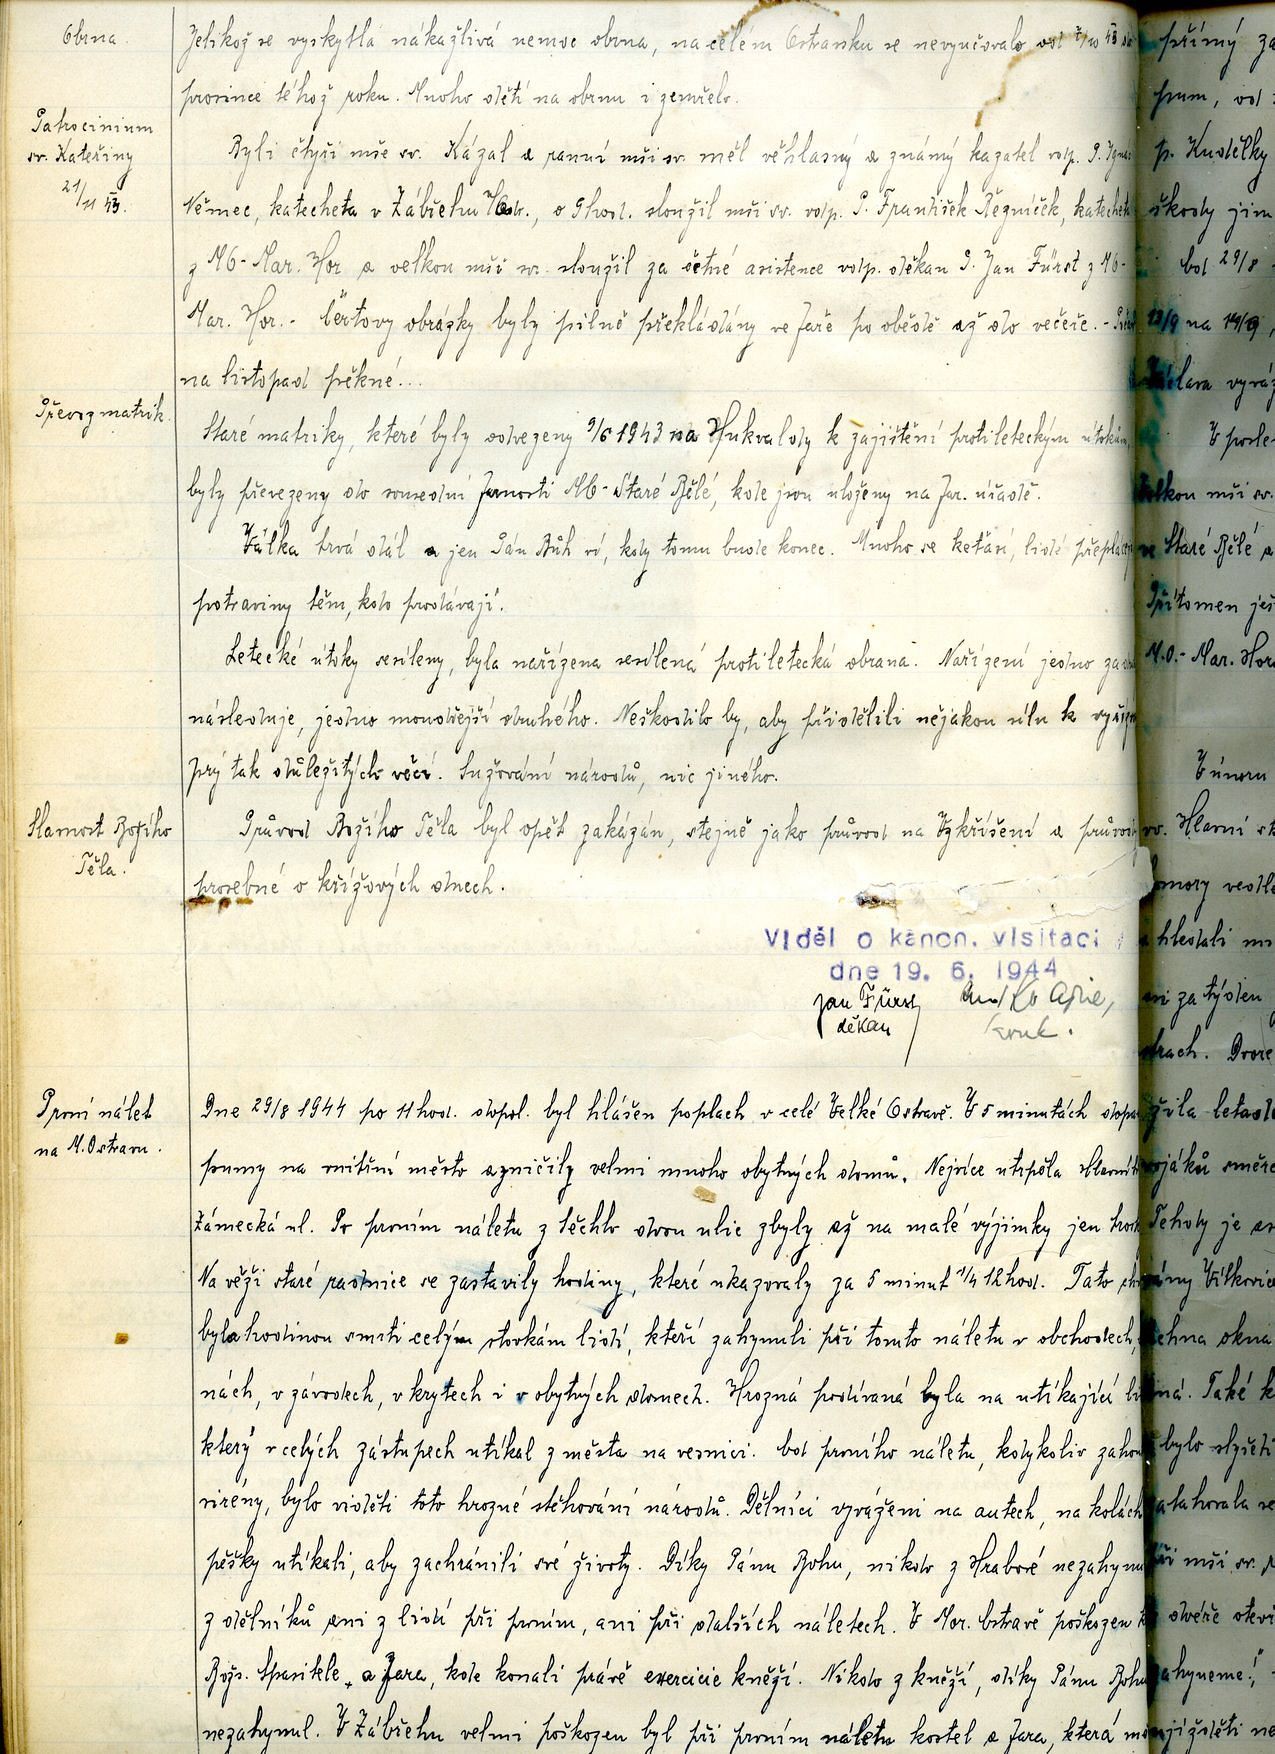 Obrna.
Jelikož se vyskytla nákažlivá nemoc obrna, na celém Ostravsku se nevyučovalo od
prosince téhož roku. Mnoho dětí na obrnu i zemřelo.
Patrocinium
sv. Kateřiny
21/11 43.
Byli čtyři mše sv. Kázal a ranní mši sv. měl věhlasný a známý kazatel vdp. P. Ignác
Němec, katecheta v Zábřehu, o 9 hod. sloužil mši sv. vdp. P. František Řezníček, katecheta
z MO-Mar. Hor a velkou mši sv. sloužil za četné asistence vdp. děkan P. Jan Fürst z MO-
Mar. Hor. - Čertovy obrázky byly pilně překládány ve faře po obědě až do večeře. -
na listopad pěkné...
Převoz matrik.
Staré matriky, které byly odvezeny 9/6 1943 na Hukvaldy k zajištění protileteckým útokům,
byly převezeny do sousední farnosti MO-Staré Bělé, kde jsou uloženy na far. úřadě.
Válka trvá dál a jen Pán Bůh ví, kdy tomu bude konec. Mnoho se keťasí, lidé přeplácejí
potraviny těm, kdo prodávají.
Letecké útoky sesíleny, byla nařízena sesílená protiletecká obrana. Nařízení jedno za
následuje, jedno moudřejší druhého. Neškodilo by, aby přidělili nějakou sílu k
prý tak důležitých věcí. Sužování národů, nic jiného.
Slavnost Božího
Těla.
Průvod Božího Těla byl opět zakázán, stejně jako průvod na Vzkříšení a průvody
prosebné o křížových dnech.
Viděl o kanon. visitaci
dne 19. 6. 1944
Jan Fürst
děkan
První nálet
na M. Ostravu.
Dne 29/8 1944 po 11 hod. dopol. byl hlášen poplach v celé Velké Ostravě. V 5 minutách
pumy na vnitřní město a zničily velmi mnoho obytných domů. Nejvíce utrpěla
Zámecká ul. Po prvním náletu z těchto dvou ulic zbyly až na malé výjimky jen
Na věži staré radnice se zastavily hodiny, které ukazovaly za 5 minut 1/4 12 hod. Tato
byla hodinou smrti celým stovkám lidí, kteří zahynuli při tomto náletu v obchodech,
nách, v závodech, v krytech i v obytných domech. Hrozná podívaná byla na utíkající
který v celých zástupech utíkal z města na vesnici. Od prvního náletu, kdykoliv
sirény, bylo viděti toto hrozné stěhování národů. Dělníci vyváženi na autech, na kolách
pěšky utíkali, aby zachránili své životy. Díky Pánu Bohu, nikdo z Hrabové nezahynul
z dělníků ani z lidí při prvním, ani při dalších náletech. V Mor. Ostravě poškozen
Božs. Spasitele a fara, kde konali právě exercicie kněží. Nikdo z kněží, díky Pánu Bohu
nezahynul. V Zábřehu velmi poškozen byl při prvním náletu kostel a fara, která
přímý
pum, od
p. Kudělky
škody jim
Od 29/8
13/9 na 14/9,
V posle-
velkou mši sv.
ve Staré Bělé a
Přítomen
M.O.- Mar. Hor
V únoru
Hlavní
vedle
hledali
za týden
Tehdy je
Vítkovice
okna
Také
bylo slyšeti
mši sv.
dveře
zahyneme!"